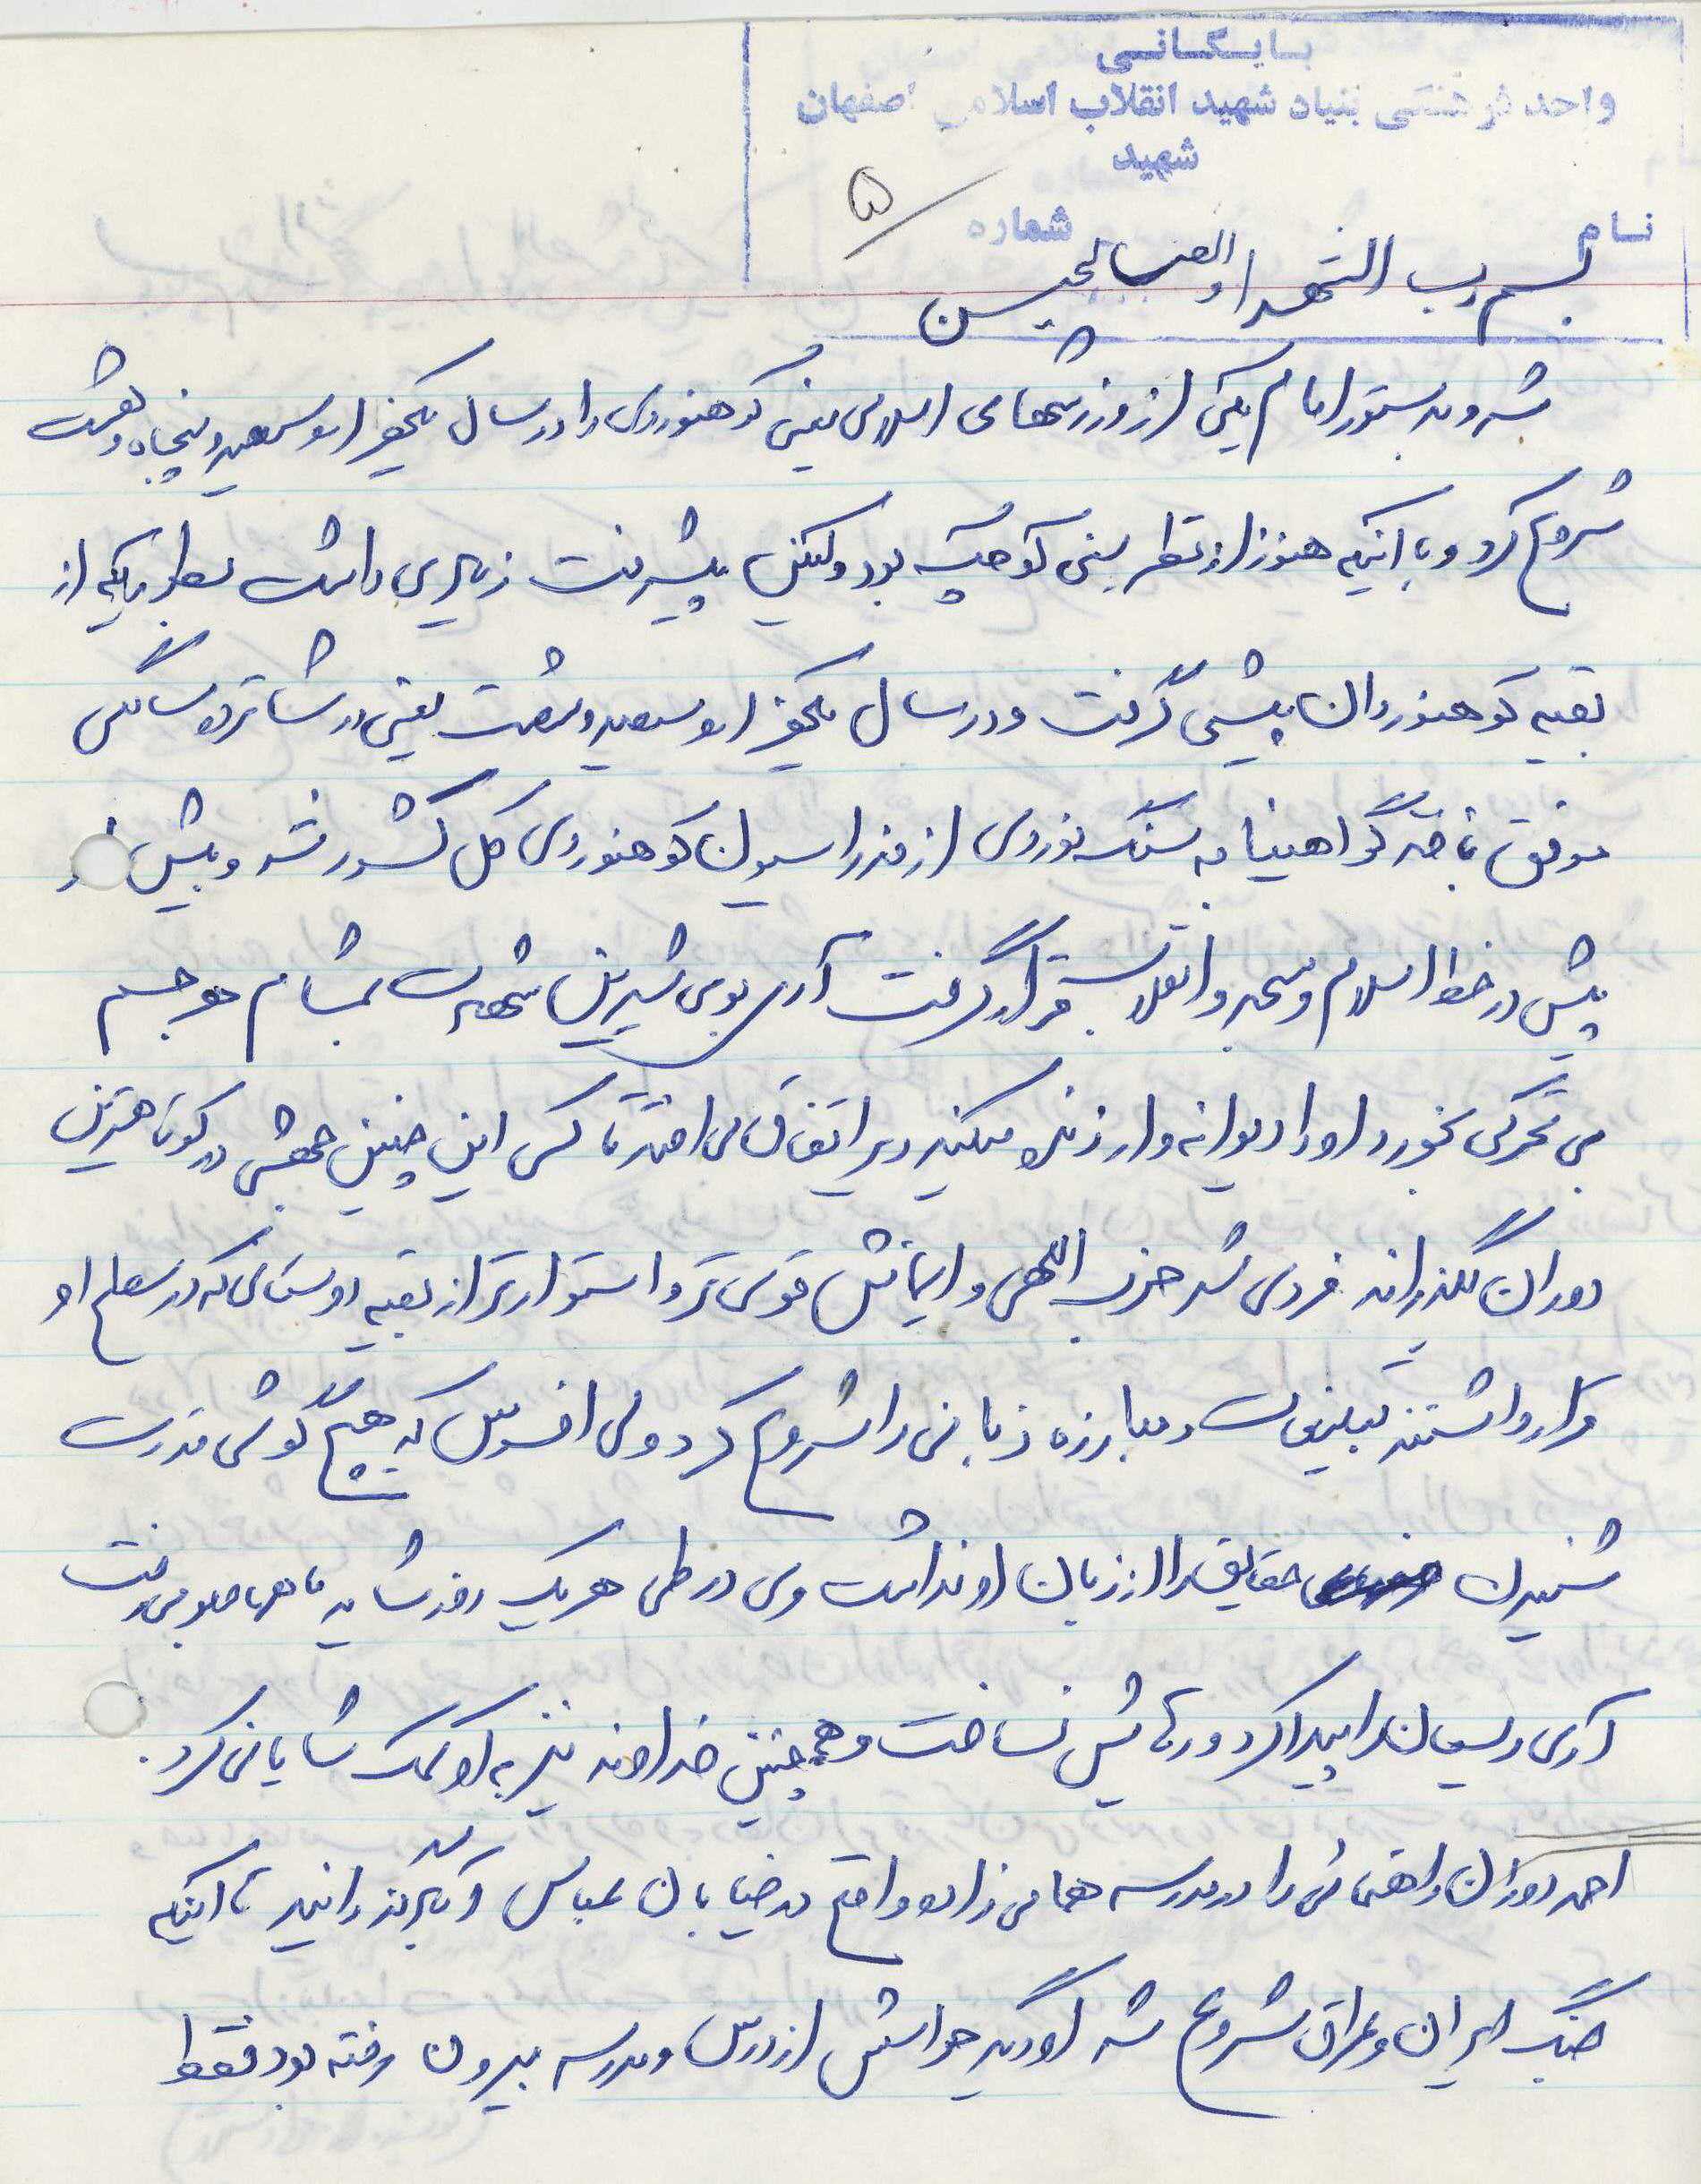 بایگانی
واحد فرهنگی بنیاد شهید انقلاب اسلامی اصفهان
شهید
نام شماره ۵
بسم رب الشهدا والصالحین
شد و بدستور امام یکی از ورزشهای اسلامی یعنی کوهنوردی را در سال یکهزار و سیصد و پنجاه و هشت
شروع کرد و با اینکه هنوز از نظر سنی کوچک بود ولیکن پیشرفت زیادی داشت بطوریکه از
بقیه کوهنوردان پیشی گرفت و در سال یکهزار و سیصد و شصت یعنی در شانزده سالگی
موفق باخذ گواهینامه سنگ نوردی از فدراسیون کوهنوردی کل کشور شد و بیش از
پیش در خط اسلام و مسجد و انقلاب قرار گرفت آری بوی شیرین شهادت بمشام هر جسم
بی تحرکی بخورد او را دیوانه وار زنده میکند دیر اتفاق می افتد تا کسی این چنین جهشی در کوتاهترین
دوران بگذراند فردی شد حزب اللهی و ایمانش قوی تر و استوارتر از بقیه دوستانی که در سطح او
قرار داشتند تبلیغات و مبارزه زبانی را شروع کرد ولی افسوس که هیچ گوشی قدرت
شنیدن حقایق را از زبان او نداشت وی در طی هر یک روز شاید ماهها جلو میرفت
آری ریسمان را پیدا کرد و رهایش نساخت و همچنین خداوند نیز به او کمک شایانی کرد.
احمد دوران راهنمائی را در مدرسه همامی زاده واقع در خیابان عباس آباد گذرانید تا اینکه
جنگ ایران و عراق شروع شد او دیگر حواسش از درس و مدرسه بیرون رفته بود فقط